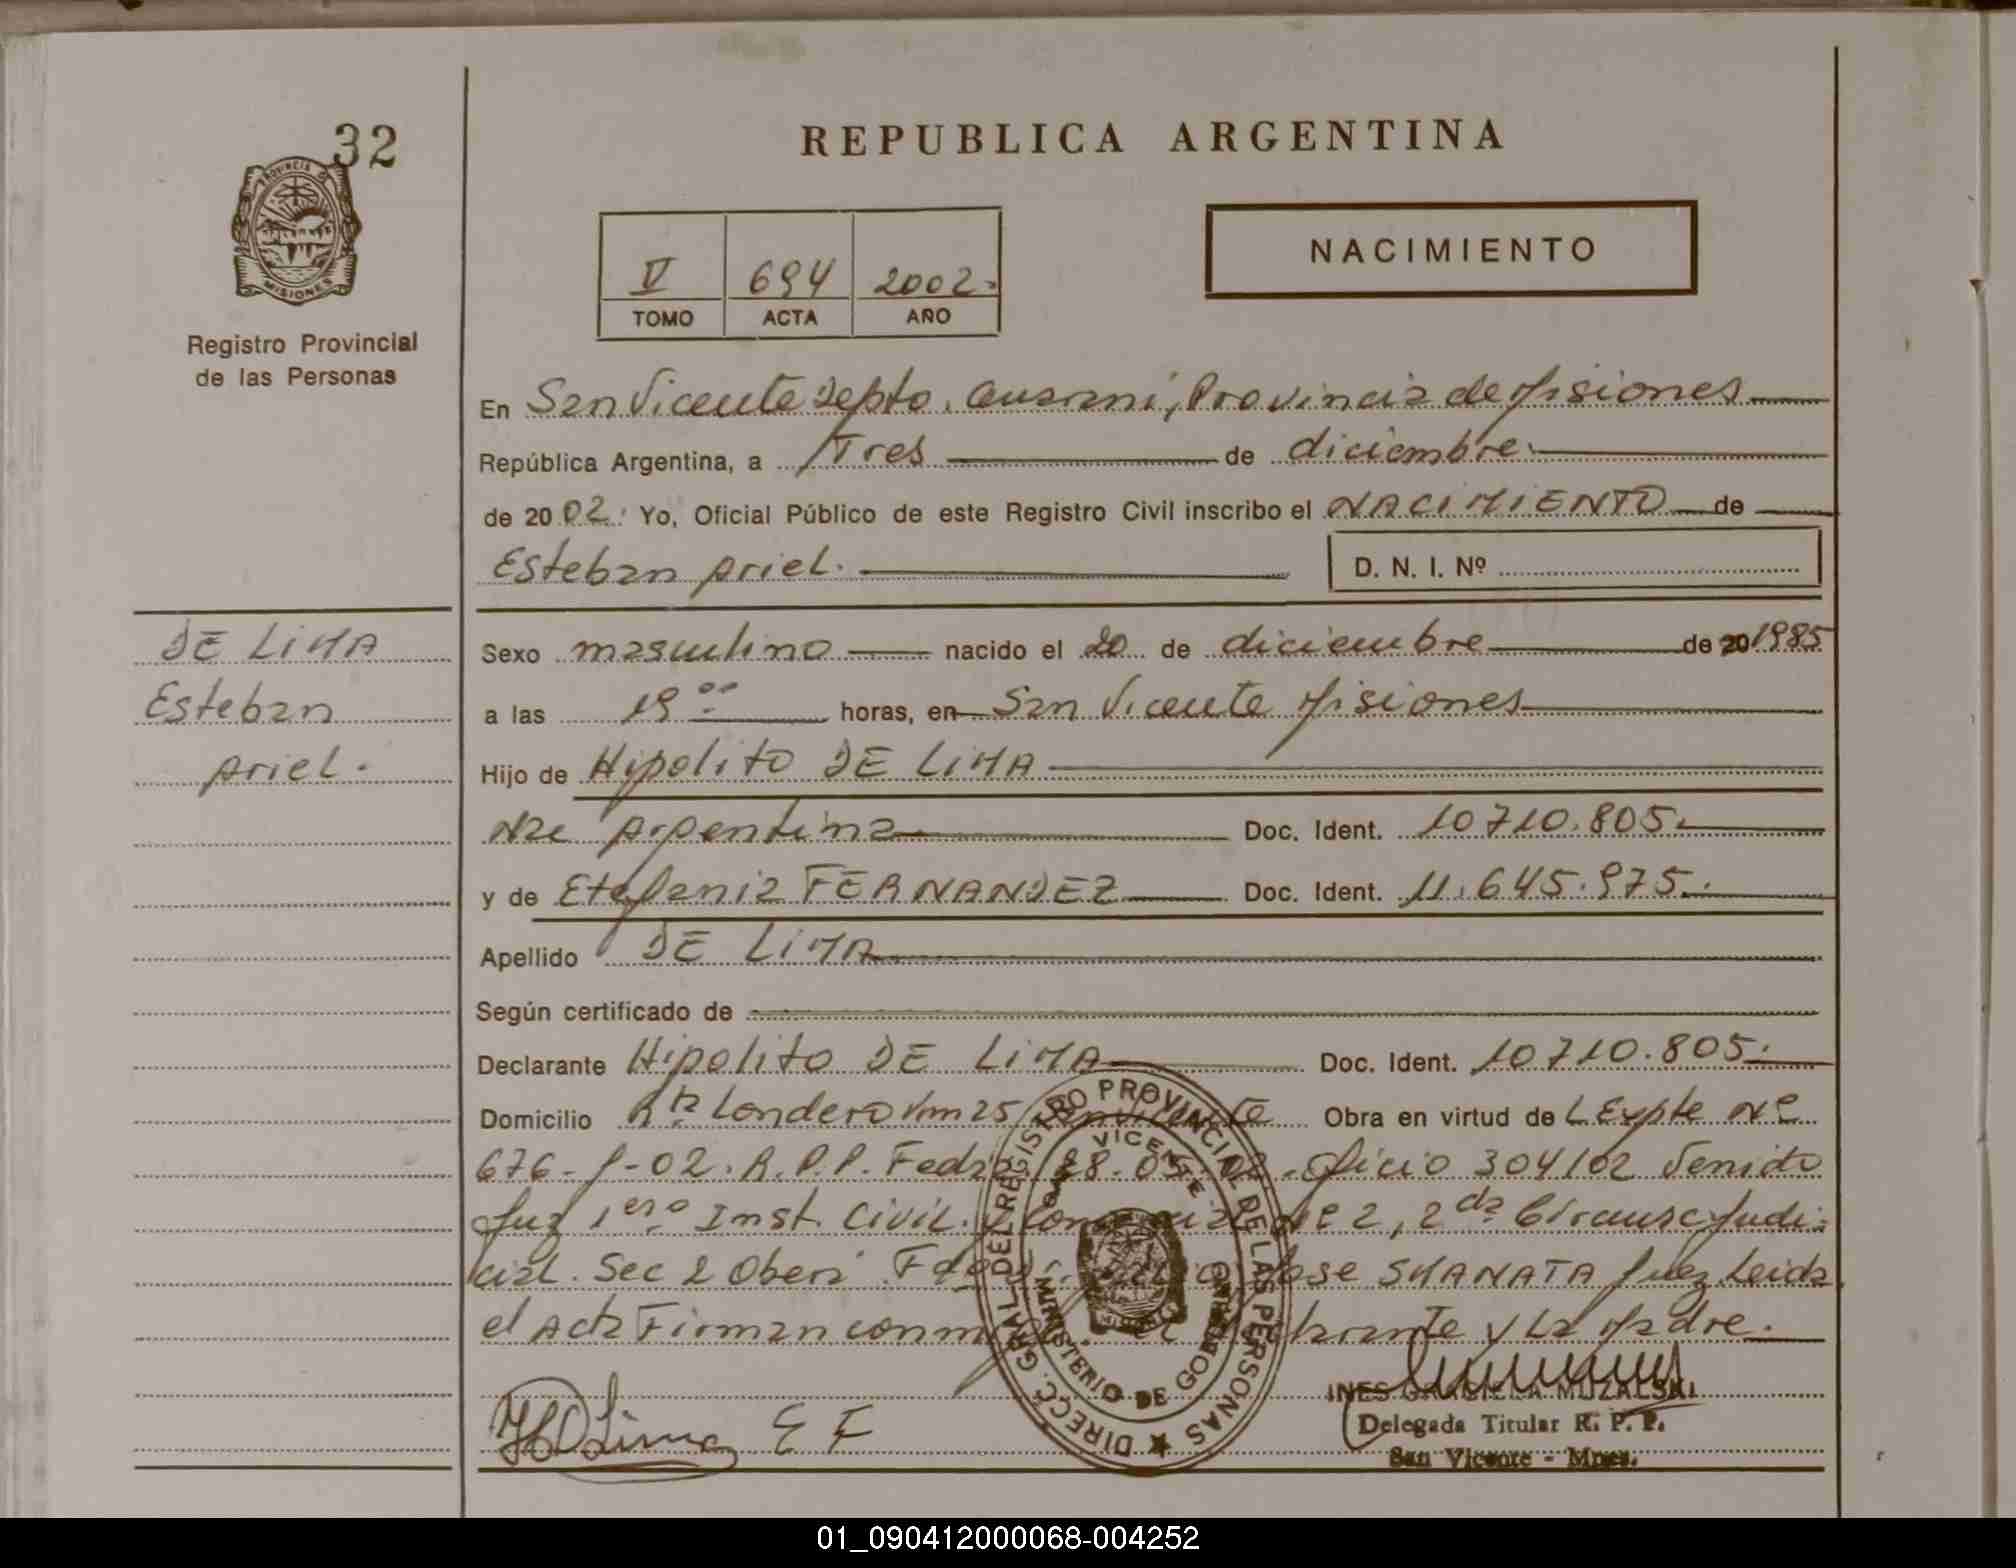 32
PROVINCIA DE
MISIONES
Registro Provincial
de las Personas
REPUBLICA ARGENTINA
V 694 2002.
TOMO ACTA AÑO
NACIMIENTO
En San Vicente Depto. Guarani, Provincia de Misiones
República Argentina, a Tres de diciembre
de 2002. Yo, Oficial Público de este Registro Civil inscribo el NACIMIENTO de
Esteban Ariel. D. N. I. Nº
DE LIMA
Esteban
Ariel.
Sexo masculino nacido el 20 de diciembre de 20 1985
a las 19 00 horas, en San Vicente Misiones
Hijo de Hipolito DE LIMA
Nac Argentina Doc. Ident. 10710.805.
y de Etefania FERNANDEZ Doc. Ident. 11.645.975.
Apellido DE LIMA
Según certificado de
Declarante Hipolito DE LIMA Doc. Ident. 10710.805.
Domicilio Rta Londero Km 25 San Vicente Obra en virtud de L Expte Nº
676- -02. R.P.P. Fedra Oficio 304/02 Venido
Juz 1ero Inst. Civil. y Comercial Nº 2, 2da Circunsc Judi-
cial. Sec 2 Obera Jose SKANATA Juez Leida
el Acta Firman conmigo el Declarante y La Madre.
H D Lima E F
DIRECC. GRAL. DEL REGISTRO PROVINCIAL DE LAS PERSONAS
SAN VICENTE
MINISTERIO DE GOBIERNO
MISIONES
INES GRACIELA MUZALSKI
Delegada Titular R. P. P.
San Vicente - Mnes.
01_090412000068-004252